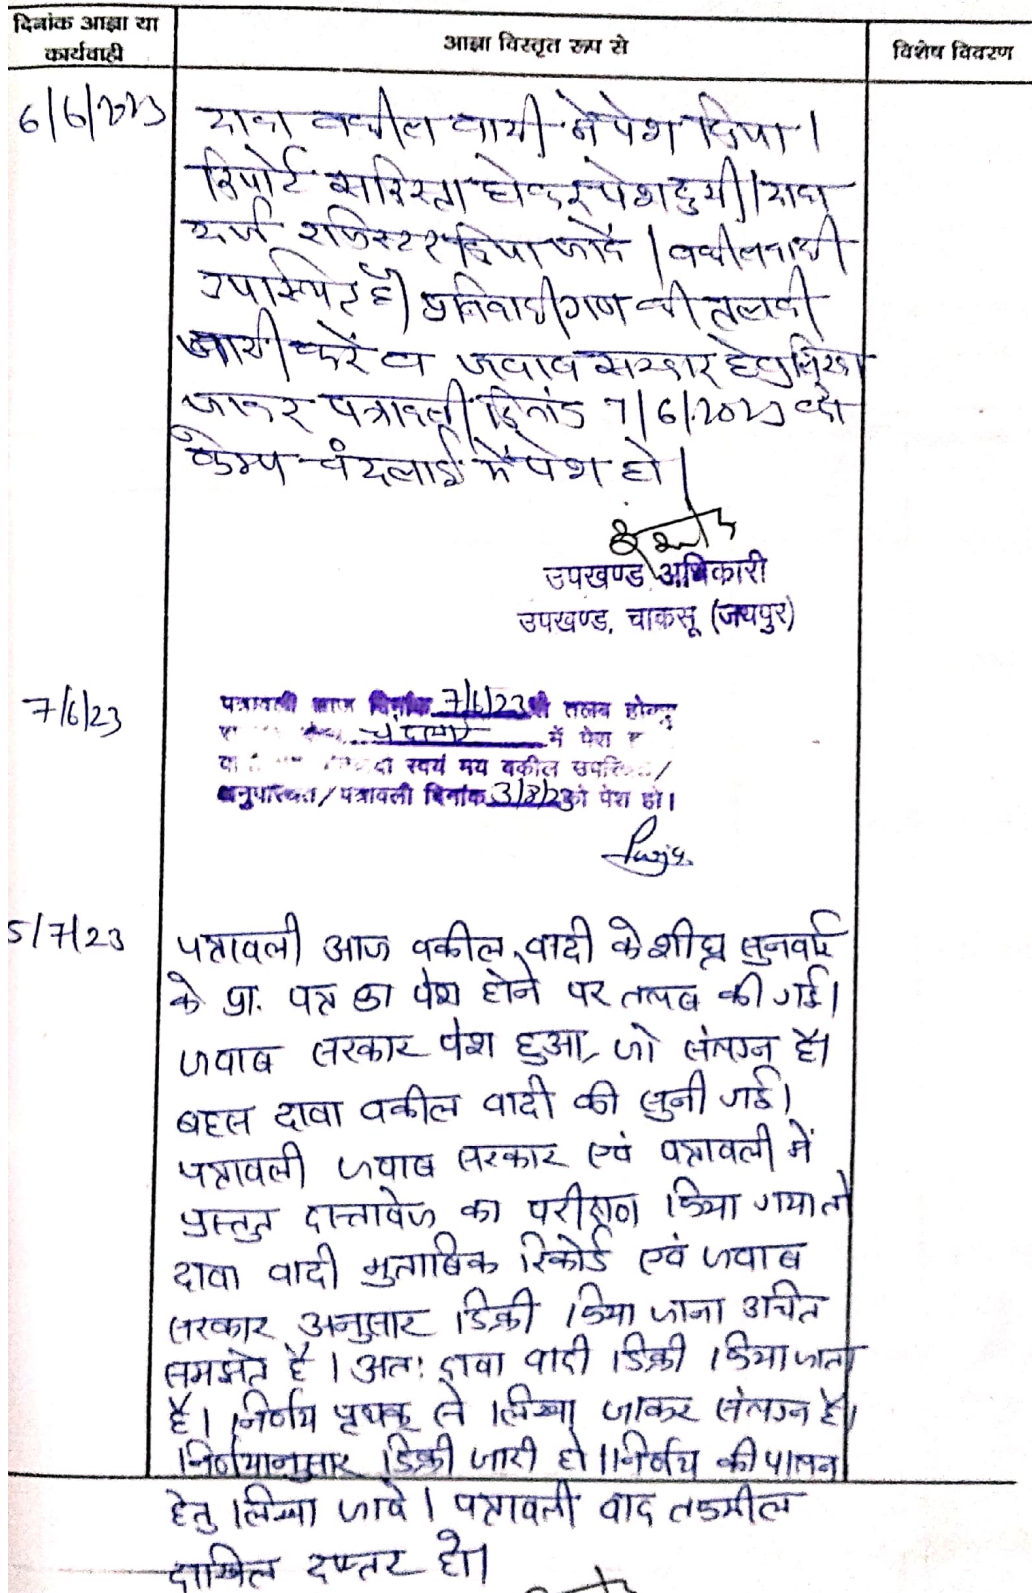 दिनांक आज्ञा या
कार्यवाही
आज्ञा विस्तृत रूप से
विशेष विवरण
6/6/2023
दावा वकील वादी ने पेश किया।
रिपोर्ट सरिस्ता होकर पेश हुयी। दावा
दर्ज रजिस्टर किया जावे। वकील वादी
उपस्थित है। प्रतिवादीगण की तलबी
जारी करें व जवाब सरकार हेतु लिखा
जाकर पत्रावली दिनांक 7/6/2023 को
केम्प चंदलाई में पेश हो।
उपखण्ड अधिकारी
उपखण्ड, चाकसू (जयपुर)
7/6/23
पत्रावली आज दिनांक 7/6/23 को तलब होकर
चंदलाई में पेश
स्वयं मय वकील उपस्थित/
अनुपस्थित/पत्रावली दिनांक 3/8/23 को पेश हो।
5/7/23
पत्रावली आज वकील वादी के शीघ्र सुनवाई
के प्रा. पत्र का पेश होने पर तलब की गई।
जवाब सरकार पेश हुआ, जो संलग्न है।
बहस दावा वकील वादी की सुनी गई।
पत्रावली जवाब सरकार एवं पत्रावली में
प्रस्तुत दास्तावेज का परीक्षण किया गया तो
दावा वादी मुताबिक रिकोर्ड एवं जवाब
सरकार अनुसार डिक्री किया जाना उचित
समझते है। अतः दावा वादी डिक्री किया जाता
है। निर्णय पृथक से लिखा जाकर संलग्न है।
निर्णयानुसार डिक्री जारी हो। निर्णय की पालना
हेतु लिखा जावे। पत्रावली बाद तकमील
दाखिल दफ्तर हो।